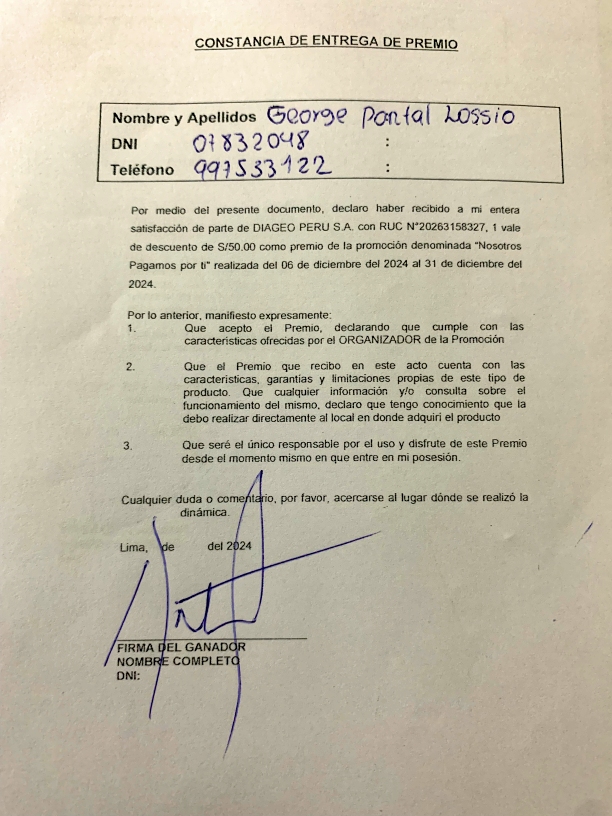 CONSTANCIA DE ENTREGA DE PREMIO
Nombre y Apellidos George Pantal Lossio
DNI 07832048 :
Teléfono 997533122 :
Por medio del presente documento, declaro haber recibido a mi entera
satisfacción de parte de DIAGEO PERU S.A. con RUC N°20263158327, 1 vale
de descuento de S/50.00 como premio de la promoción denominada "Nosotros
Pagamos por ti" realizada del 06 de diciembre del 2024 al 31 de diciembre del
2024.
Por lo anterior, manifiesto expresamente:
1. Que acepto el Premio, declarando que cumple con las
características ofrecidas por el ORGANIZADOR de la Promoción
2. Que el Premio que recibo en este acto cuenta con las
características, garantías y limitaciones propias de este tipo de
producto. Que cualquier información y/o consulta sobre el
funcionamiento del mismo, declaro que tengo conocimiento que la
debo realizar directamente al local en donde adquirí el producto
3. Que seré el único responsable por el uso y disfrute de este Premio
desde el momento mismo en que entre en mi posesión.
Cualquier duda o comentario, por favor, acercarse al lugar dónde se realizó la
dinámica.
Lima, de del 2024
FIRMA DEL GANADOR
NOMBRE COMPLETO
DNI: